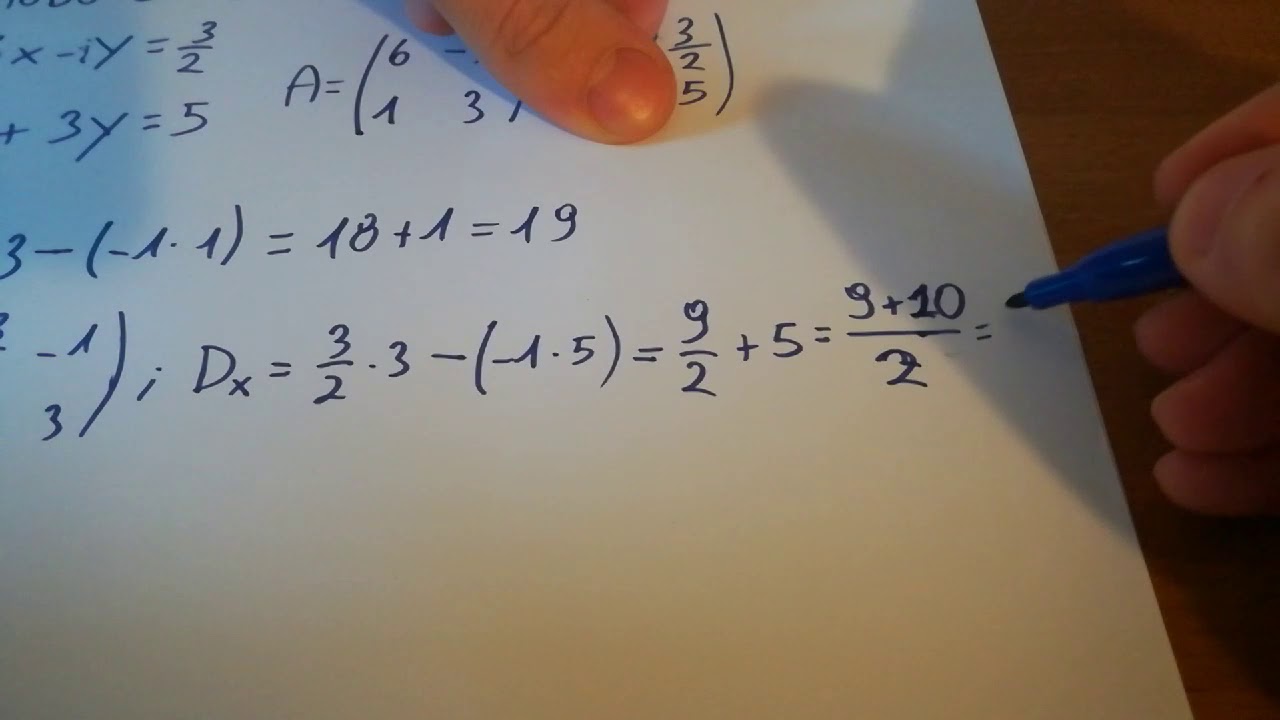 x - iy = 3/2
A = ( 6 - 3/2
+ 3y = 5
1 3 5 )
3 - (-1 · 1) = 18 + 1 = 19
-1
3 ) ; Dx = 3/2 · 3 - (-1 · 5) = 9/2 + 5 = (9+10)/2 =